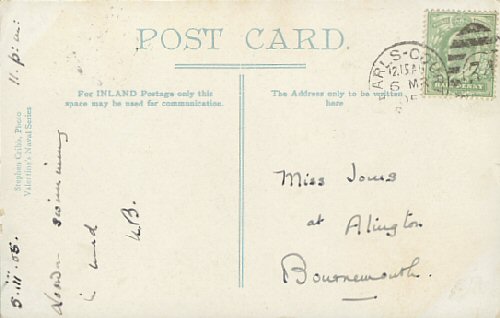 POST CARD.
For INLAND Postage only this
space may be used for communication.
The Address only to be written
here
Stephen Cribb, Photo
Valentine's Naval Series
5.III.05.
11. p.m.
swimming
in mud
Miss Jones
at Alington
Bournemouth.
EARLS-C
12.15 A
6 M
PENNY